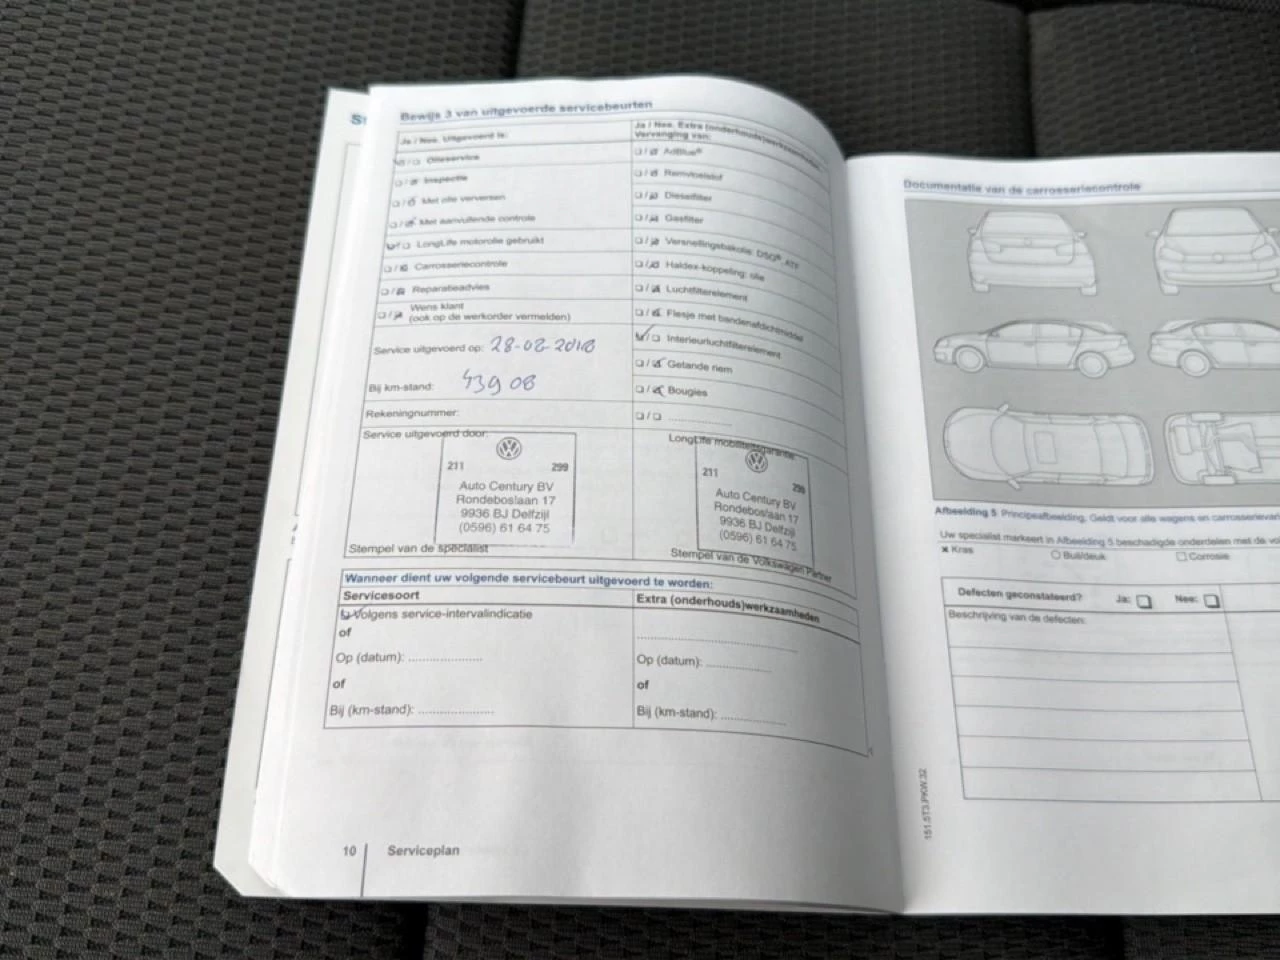 St
Bewijs 3 van uitgevoerde servicebeurten
Ja / Nee. Uitgevoerd is:
Olieservice
Inspectie
Met olie verversen
Met aanvullende controle
LongLife motorolie gebruikt
Carrosseriecontrole
Reparatieadvies
Wens klant
(ook op de werkorder vermelden)
Service uitgevoerd op: 28-02-2018
Bij km-stand: 43908
Rekeningnummer:
Service uitgevoerd door:
211 299
Auto Century BV
Rondeboslaan 17
9936 BJ Delfzijl
(0596) 61 64 75
Stempel van de specialist
Ja / Nee. Extra (onderhouds)werkzaamheden
Vervanging van:
AdBlue®
Remvloeistof
Dieselfilter
Gasfilter
Versnellingsbakolie: DSG®, ATF
Haldex-koppeling: olie
Luchtfilterelement
Flesje met bandenafdichtmiddel
Interieurluchtfilterelement
Getande riem
Bougies
LongLife mobiliteitsgarantie
211 299
Auto Century BV
Rondeboslaan 17
9936 BJ Delfzijl
(0596) 61 64 75
Stempel van de Volkswagen Partner
Wanneer dient uw volgende servicebeurt uitgevoerd te worden:
Servicesoort
Volgens service-intervalindicatie
of
Op (datum): ....................
of
Bij (km-stand): ....................
Extra (onderhouds)werkzaamheden
Op (datum): ..................
of
Bij (km-stand): ..................
10 Serviceplan
Documentatie van de carrosseriecontrole
Afbeelding 5 Principeafbeelding. Geldt voor alle wagens en carrosserievar
Uw specialist markeert in Afbeelding 5 beschadigde onderdelen met de vol
x Kras
Buil/deuk
Corrosie
Defecten geconstateerd? Ja: Nee:
Beschrijving van de defecten:
151.5T3.PKW.32